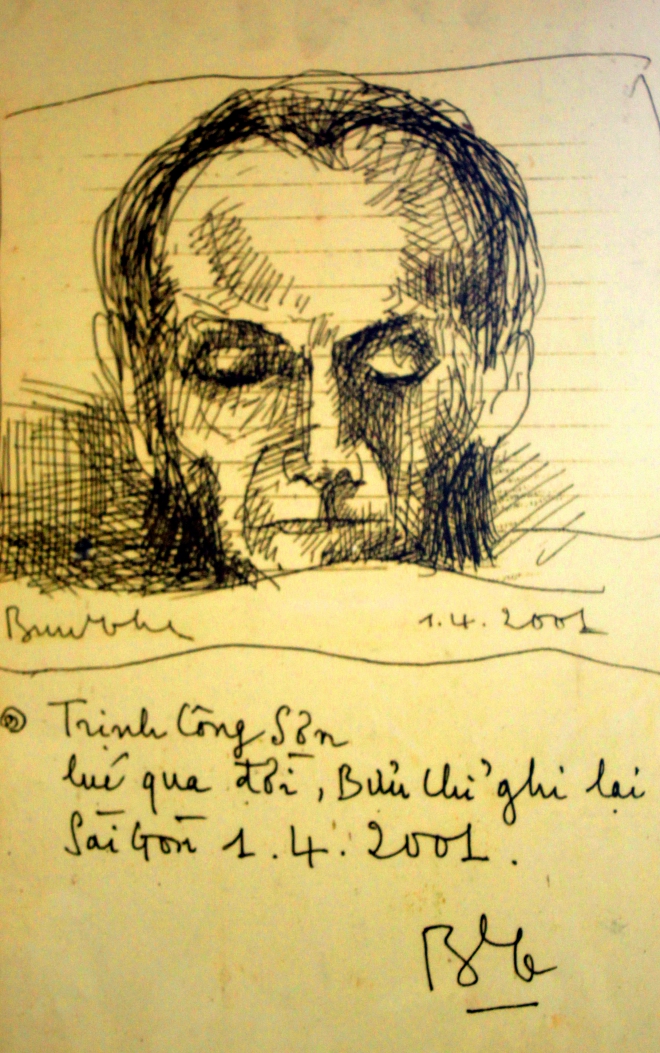 Bửu Chỉ 1.4.2001
Trịnh Công Sơn
lúc qua đời, Bửu Chỉ ghi lại
Sài Gòn 1.4.2001.